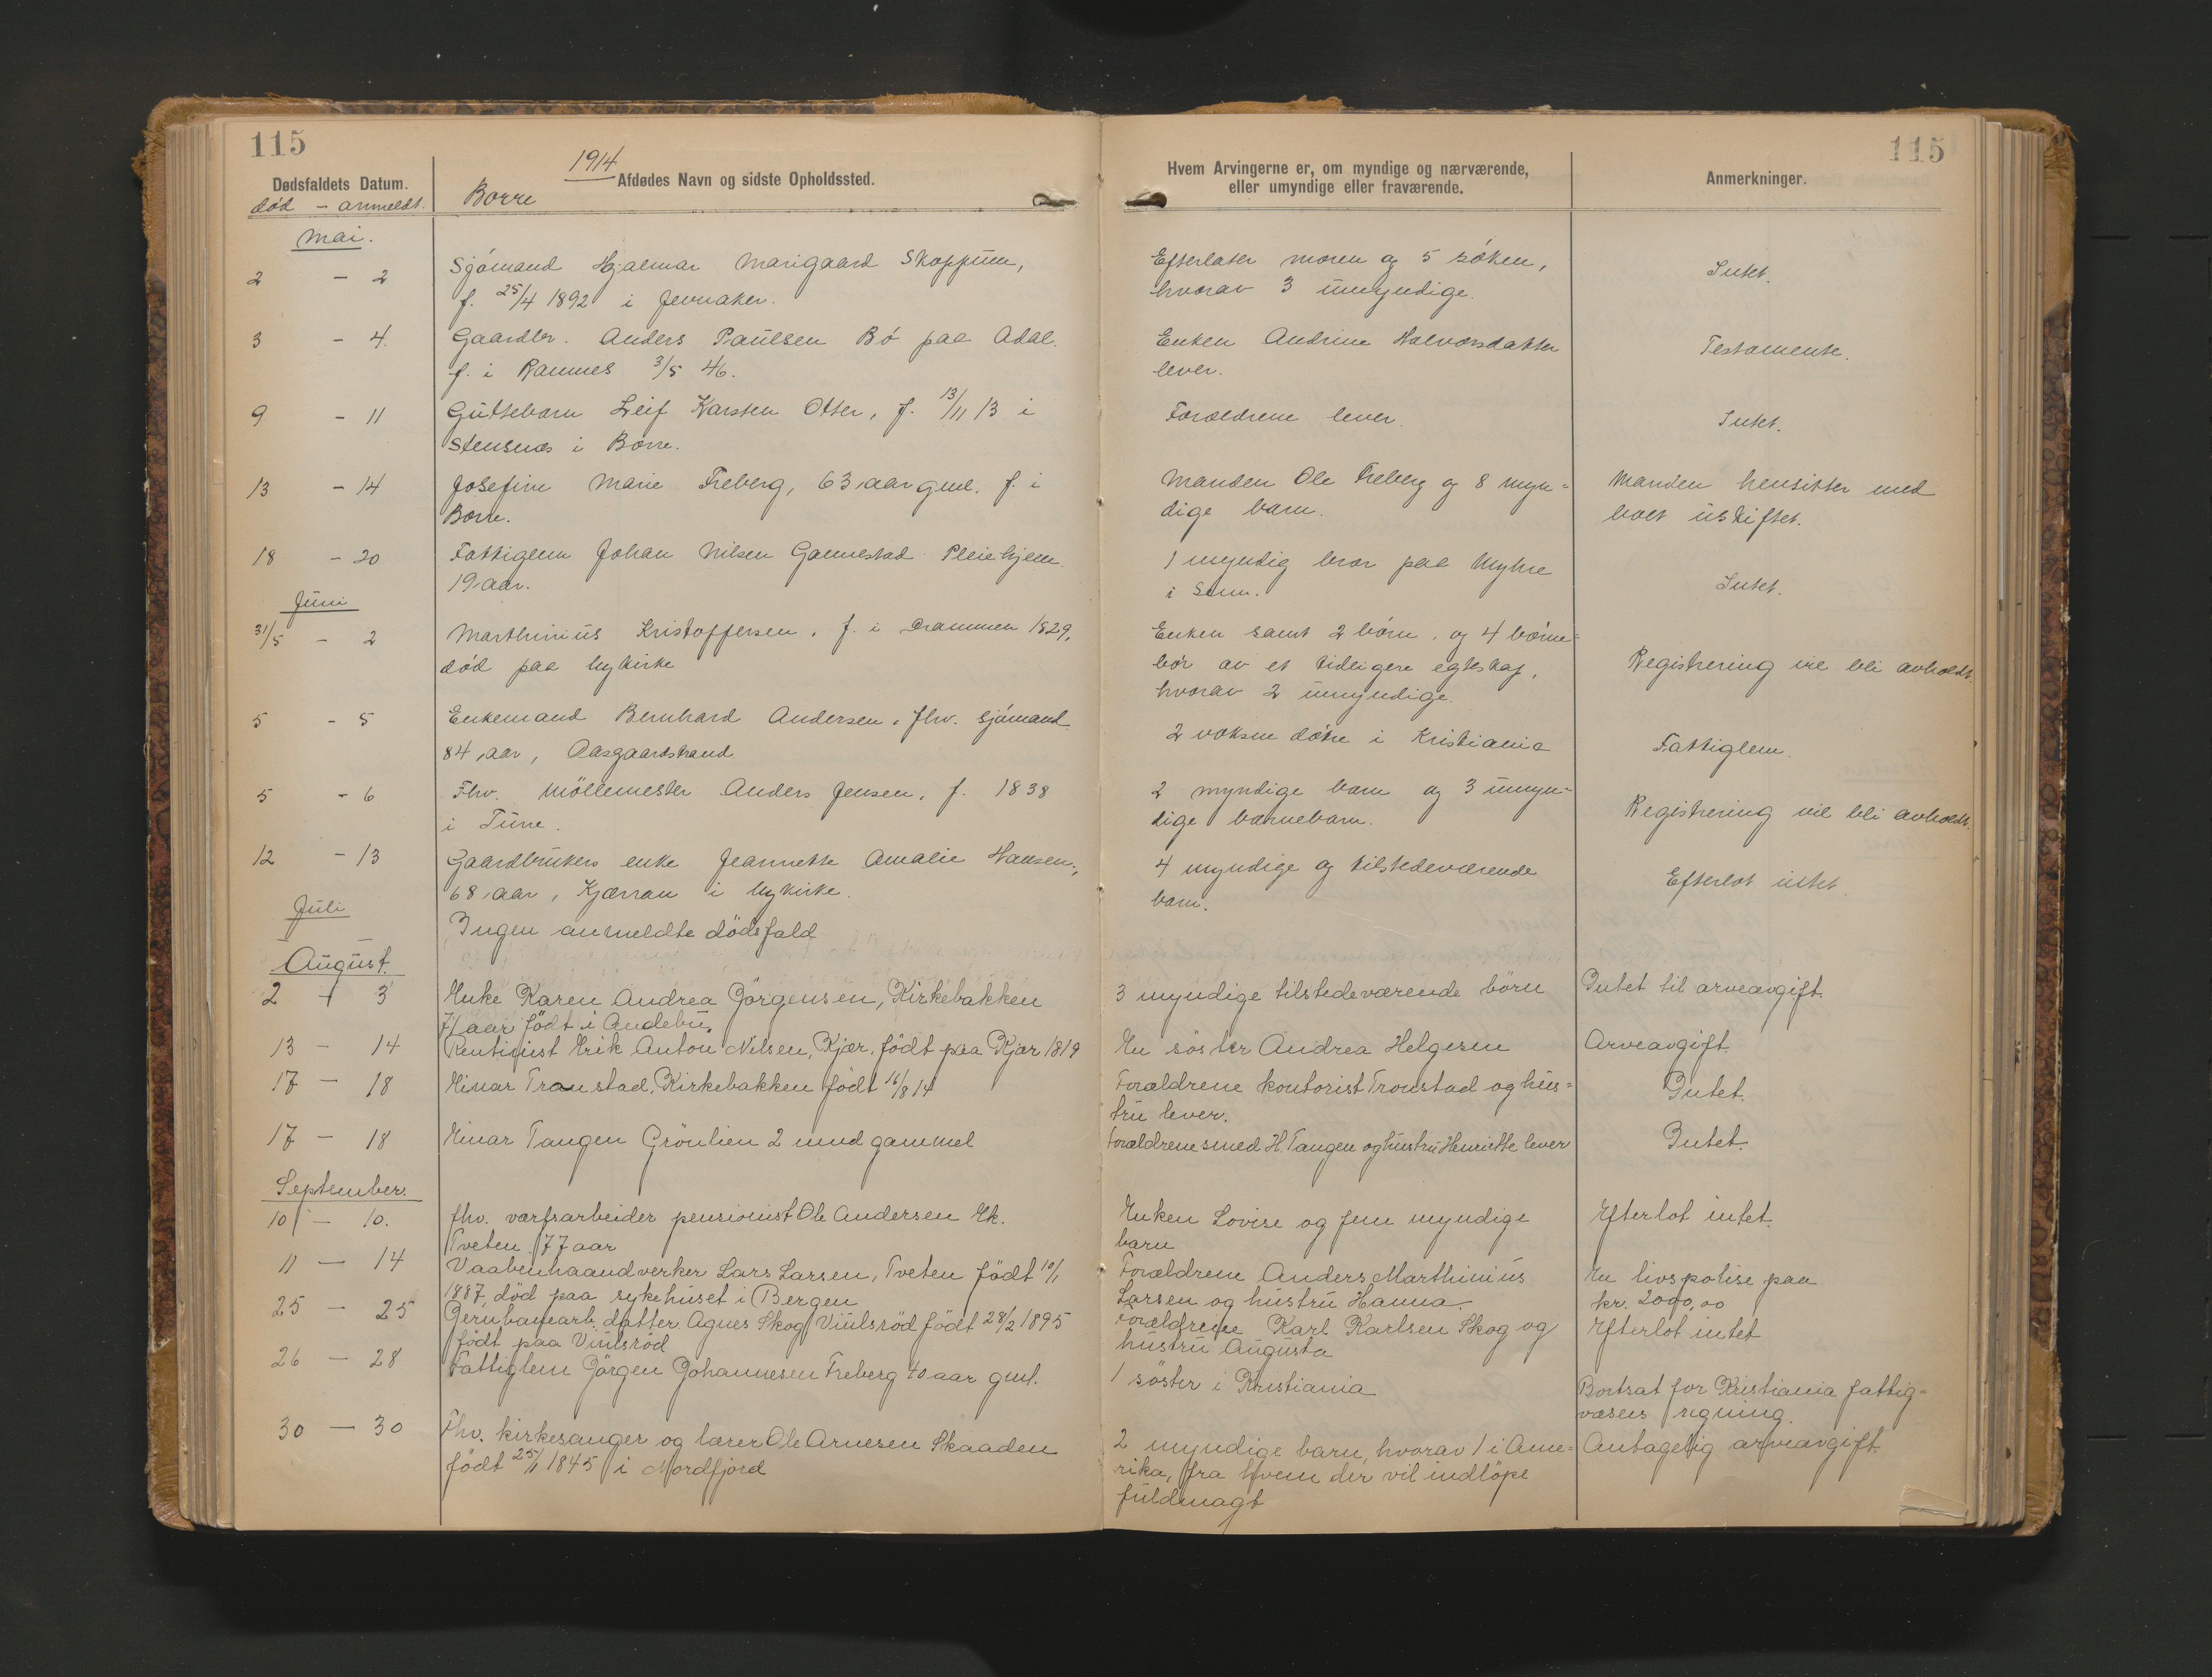 115
1914
Dødsfaldets Datum.
Afdødes Navn og sidste Opholdssted.
død - anmeldt.
Borre
Mai.
2 - 2
Sjómand Hjalmar Marigaard Skoppum,
f. 25/4 1892 i Jevnaker.
3 - 4.
Gaardbr. Anders Paulsen Bó paa Adal.
f. i Ramnes 3/5 46.
9 - 11
Guttebarn Leif Karsten Otter, f. 13/11 13 i
Stensnes i Borre.
13 - 14
Josefine Marie Freberg, 63 aar gml. f. i
Borre.
18 - 20
Fattiglem Johan Nilsen Gannestad Pleiehjem.
19 aar.
Juni
31/5 - 2
Marthinius Kristoffersen, f. i Drammen 1829,
død paa Nykirke
5 - 5
Enkemand Bernhard Andersen, fhv. sjómand
84 aar, Aasgaardstrand.
5 - 6
Fhv. Möllemester Anders Jensen, f. 1838
i Tune.
12 - 13
Gaardbrukers enke Jeannette Amalie Hansen,
68 aar, Kjærran i Nykirke.
Juli
Ingen anmeldte dödsfald
August.
2 + 3
Enke Karen Andrea Jörgensen, Kirkebakken
71 aar født i Andebu.
13 - 14
Rentinist Erik Anton Nilsen, Kjær, födt paa Kjær 1819
17 - 18
Einar Transtad, Kirkebakken födt 16/8 14
17 - 18
Einar Tangen Grönlien 2 mnd gammel
September.
10 - 10.
fhv. varfsarbeider pensionist Ole Andersen Ek.
Tveten 77 aar
11 - 14
Vaabenhaandverker Lars Larsen, Tveten födt 10/1
1887, död paa sykehuset i Bergen
25 - 25
Jernbanearb. datter Agnes Skog Viulsröd födt 28/2 1895
födt paa Viulsröd
26 - 28
Fattiglem Jörgen Johannesen Freberg 40 aar gml.
30 - 30
Fhv. kirkesanger og lærer Ole Arnesen Skaaden
födt 25/1 1845 i Nordfjord
115
Hvem Arvingerne er, om myndige og nærværende,
eller umyndige eller fraværende.
Anmerkninger.
Efterlater moren og 5 søken,
hvorav 3 umyndige.
Intet.
Enken Andrine Halvorsdatter
lever.
Testamente.
Forældrene lever.
Intet.
Manden Ole Freberg og 8 myn=
dige barn.
Manden hensitter med
boet uskiftet.
1 myndig bror paa Myhre
i Sem.
Intet.
Enken samt 2 börn, og 4 börne=
bör av et tidligere egteskap,
hvorav 2 umyndige.
Registrering vil bli avholdt.
2 voksne dötre i Kristiania
Fattiglem.
2 myndige barn og 3 umyn=
dige barnebarn.
Registrering vil bli avholdt.
4 myndige og tilstedeværende
barn.
Efterlot intet.
3 myndige tilstedeværende börn
Intet til arveavgift.
En söster Andrea Helgesen
Arveavgift.
Forældrene kontorist Tronstad og hus=
tru lever.
Intet.
Forældrene smed H. Tangen og hustru Henriette lever
Intet.
Enken Lovise og fem myndige
barn
Efterlot intet.
Forældrene Anders Marthinius
Larsen og hustru Hanna.
En livspolise paa
kr. 2000,00
Forældrene Karl Karlsen Skog og
hustru Augusta
Efterlot intet
1 söster i Kristiania
Bortsat for Kristiania fattig-
væsens regning.
2 myndige barn, hvorav 1 i Ame=
rika, fra hvem der vil indlöpe
fuldmagt
Antagelig arveavgift.